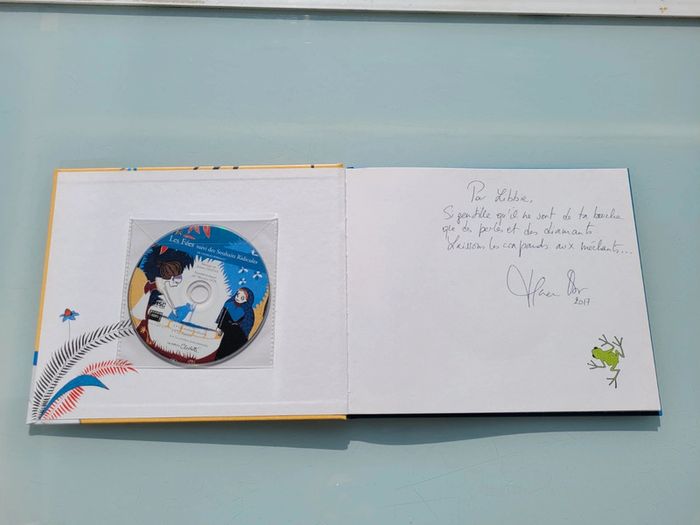 Les Fées suivi des Souhaits Ridicules
Pour Libbie,
Si gentille qu'il ne sort de ta bouche
que des perles et des diamants
Laissons les crapauds aux méchants...
2017